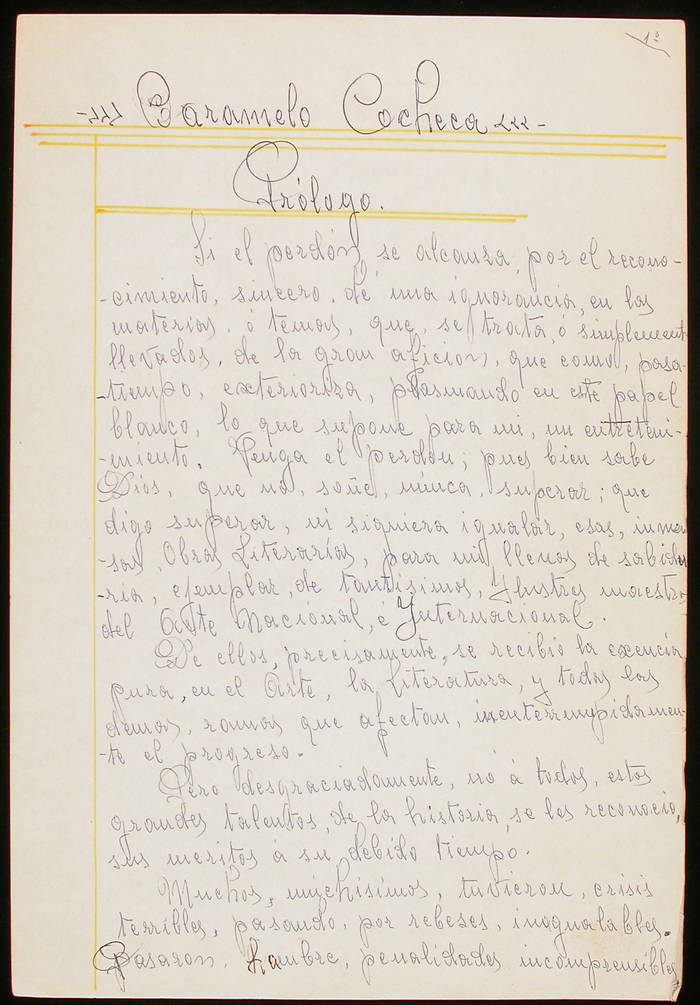 1º
Caramelo Cocheca
Prólogo.
Si el perdón, se alcanza, por el recono-
-cimiento, sincero, de una ignorancia, en las
materias, ó temas, que, se trata, ó simplement
llevados, de la gran aficion, que como, pasa-
-tiempo, exterioriza, plasmando en este papel
blanco, lo que supone para mi, un entreteni-
-miento. Venga el perdon; pues bien sabe
Dios, que no, soñe, nunca, superar; que
digo superar, ni siquiera igualar, esas, inmen
-sas, Obras Literarias, para mi llenas de sabidu
-ria, ejemplar, de tantisimos, Ylustres maestros
del Arte Nacional, é Ynternacional.
De ellos, precisamente, se recibió la exencia
pura, en el Arte, la literatura, y todas las
demas, ramas que afectan, inenterrumpidamen-
-te el progreso.-
Pero desgraciadamente, no á todos, estos
grandes talentos, de la historia, se les reconoció,
sus meritos á su debido tiempo.
Muchos, muchisimos, tuvieron, crisis
terribles, pasando, por rebeses, inagualables.
Pasaron, hambre, penalidades incomprensibles